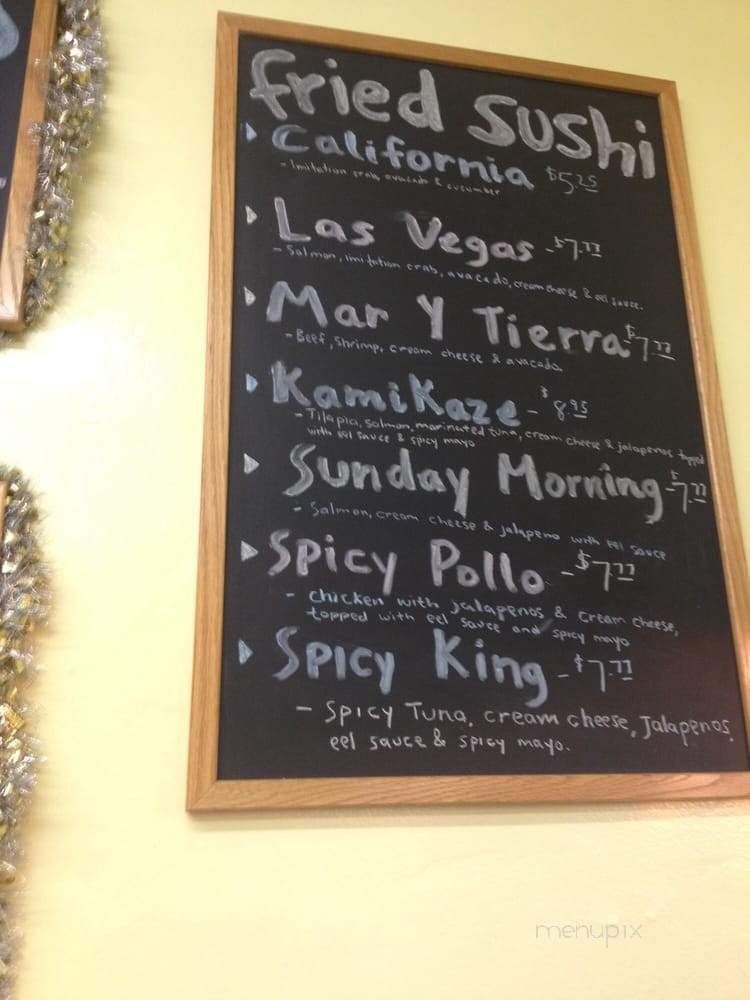 fried sushi
California $5.25
- Imitation crab, avocado & cucumber
Las Vegas - $7.77
- Salmon, imitation crab, avacado, cream cheese & eel sauce.
Mar Y Tierra $7.77
- Beef, Shrimp, cream cheese & avacado
Kamikaze - $8.95
- Tilapia, salmon, marinated tuna, cream cheese & jalapenos topped
with eel sauce & spicy mayo
Sunday Morning - $7.77
- Salmon, cream cheese & jalapeno with eel sauce
Spicy Pollo - $7.77
- chicken with jalapenos & cream cheese,
topped with eel sauce and spicy mayo
Spicy King - $7.77
- Spicy Tuna, cream cheese, Jalapenos,
eel sauce & spicy mayo.
menupix